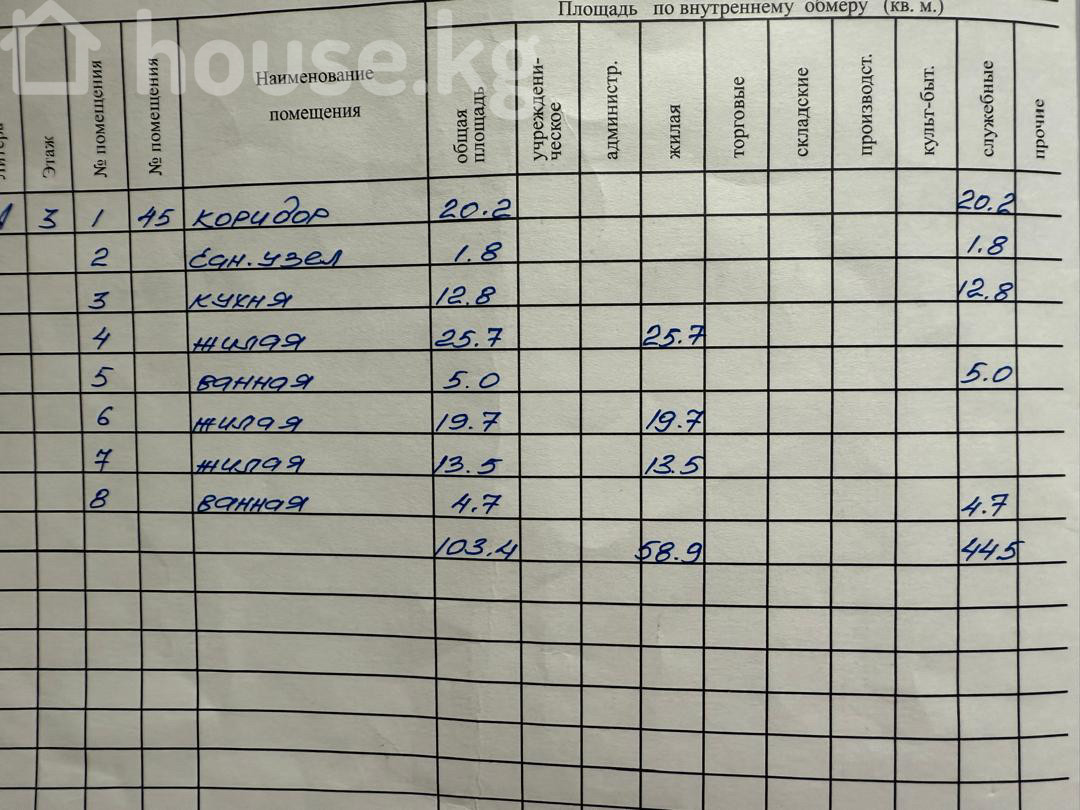 house.kg
Площадь по внутреннему обмеру (кв. м.)
Литера
Этаж
№ помещения
№ помещения
Наименование
помещения
общая
площадь
учреждени-
ческое
администр.
жилая
торговые
складские
производст.
культ-быт.
служебные
прочие
3 1 45 коридор 20.2 20.2
2 сан.узел 1.8 1.8
3 кухня 12.8 12.8
4 жилая 25.7 25.7
5 ванная 5.0 5.0
6 жилая 19.7 19.7
7 жилая 13.5 13.5
8 ванная 4.7 4.7
103.4 58.9 445